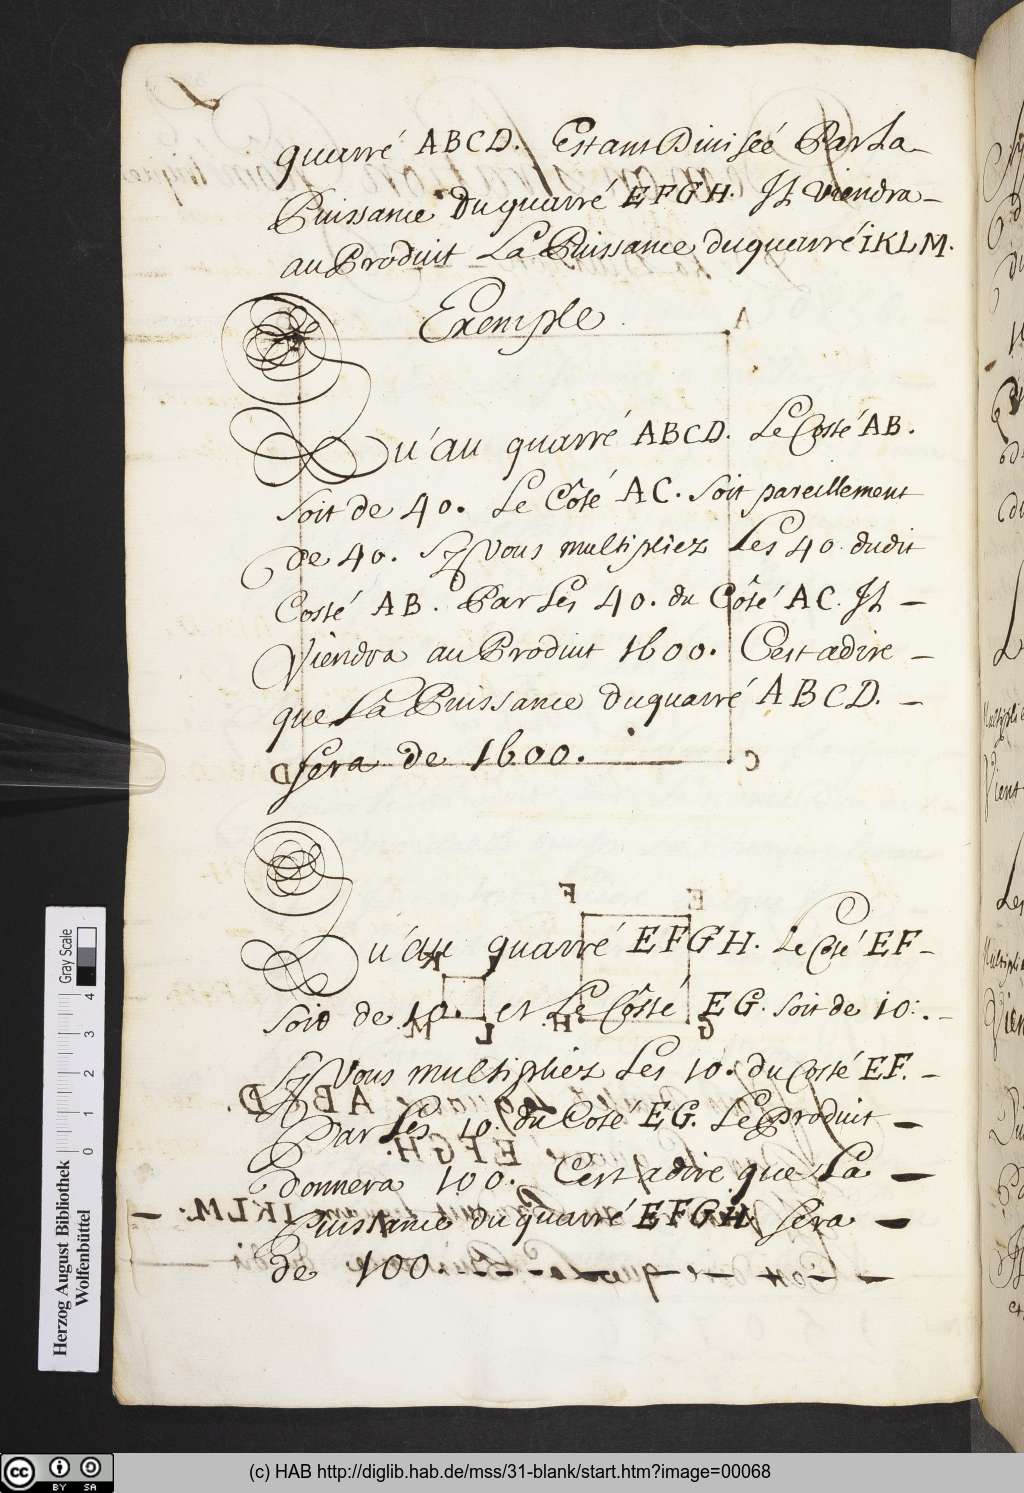 quarré ABCD. Estant Divisée Par La
Puissance Du quarré EFGH. Il viendra
au Produit La Puissance du quarré IKLM.
Exemple
Qu'au quarré ABCD. Le Costé AB.
soit de 40. Le Côté AC. soit pareillement
de 40. Sy Vous multipliez Les 40. dudit
Costé AB. Par Les 40. du Côté AC. Il
Viendra au Produit 1600. Cest adire
que La Puissance Du quarré ABCD.
sera de 1600.
Qu'au quarré EFGH. Le Coté EF
soit de 10. et Le Côsté EG. soit de 10:.
Sy Vous multipliez Les 10. du Costé EF.
Par Les 10. du Coté EG. Le Produit
donnera 100. Cest adire que La
Puissance du quarré EFGH sera
de 100.
A
D C
F E
K I
M L H. G
ABD.
EFGH.
IKLM.
Herzog August Bibliothek
Wolfenbüttel
Gray Scale
0 1 2 3 4
cc BY SA
(c) HAB http://diglib.hab.de/mss/31-blank/start.htm?image=00068